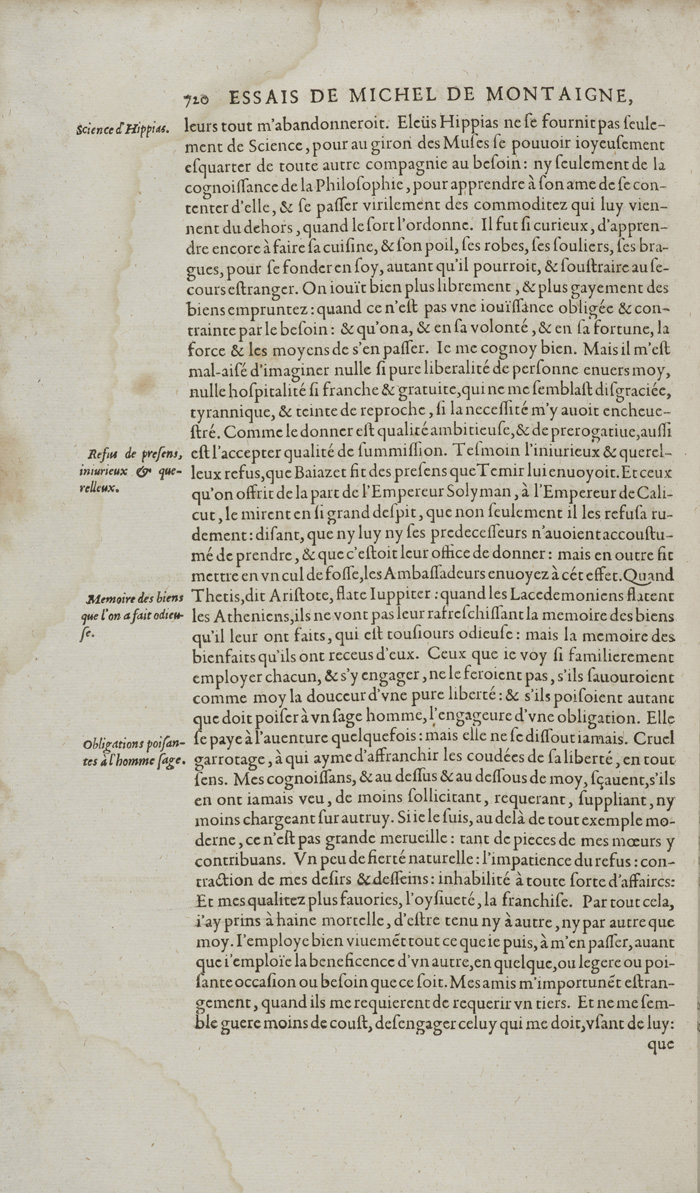 720 ESSAIS DE MICHEL DE MONTAIGNE,
Science d'Hippias.
leurs tout m'abandonneroit. Eleüs Hippias ne ſe fournit pas ſeule-
ment de Science, pour au giron des Muſes ſe pouuoir ioyeuſement
eſquarter de toute autre compagnie au beſoin: ny ſeulement de la
cognoiſſance de la Philoſophie, pour apprendre à ſon ame de ſe con-
tenter d'elle, & ſe paſſer virilement des commoditez qui luy vien-
nent du dehors, quand le ſort l'ordonne. Il fut ſi curieux, d'appren-
dre encore à faire ſa cuiſine, & ſon poil, ſes robes, ſes ſouliers, ſes bra-
gues, pour ſe fonder en ſoy, autant qu'il pourroit, & ſouſtraire au ſe-
cours eſtranger. On iouït bien plus librement, & plus gayement des
biens empruntez: quand ce n'eſt pas vne iouïſſance obligée & con-
trainte par le beſoin: & qu'on a, & en ſa volonté, & en ſa fortune, la
force & les moyens de s'en paſſer. Ie me cognoy bien. Mais il m'eſt
mal-aiſé d'imaginer nulle ſi pure liberalité de perſonne enuers moy,
nulle hoſpitalité ſi franche & gratuite, qui ne me ſemblaſt diſgraciée,
tyrannique, & teinte de reproche, ſi la neceſſité m'y auoit encheue-
ſtré. Comme le donner eſt qualité ambitieuſe, & de prerogatiue, auſſi
Refus de preſens,
iniurieux & que-
relleux.
eſt l'accepter qualité de ſummiſſion. Teſmoin l'iniurieux & querel-
leux refus, que Baiazet fit des preſens que Temir lui enuoyoit. Et ceux
qu'on offrit de la part de l'Empereur Solyman, à l'Empereur de Cali-
cut, le mirent en ſi grand deſpit, que non ſeulement il les refuſa ru-
dement: diſant, que ny luy ny ſes predeceſſeurs n'auoient accouſtu-
mé de prendre, & que c'eſtoit leur office de donner: mais en outre fit
mettre en vn cul de foſſe, les Ambaſſadeurs enuoyez à cét effet. Quand
Memoire des biens
que l'on a fait odieu-
ſe.
Thetis, dit Ariſtote, flate Iuppiter: quand les Lacedemoniens flatent
les Atheniens, ils ne vont pas leur rafreſchiſſant la memoire des biens
qu'il leur ont faits, qui eſt touſiours odieuſe: mais la memoire des
bienfaits qu'ils ont receus d'eux. Ceux que ie voy ſi familierement
employer chacun, & s'y engager, ne le feroient pas, s'ils ſauouroient
comme moy la douceur d'vne pure liberté: & s'ils poiſoient autant
que doit poiſer à vn ſage homme, l'engageure d'vne obligation. Elle
Obligations poiſan-
tes à l'homme ſage.
ſe paye à l'auenture quelquefois: mais elle ne ſe diſſout iamais. Cruel
garrotage, à qui ayme d'affranchir les coudées de ſa liberté, en tout
ſens. Mes cognoiſſans, & au deſſus & au deſſous de moy, ſçauent, s'ils
en ont iamais veu, de moins ſollicitant, requerant, ſuppliant, ny
moins chargeant ſur autruy. Si ie le ſuis, au delà de tout exemple mo-
derne, ce n'eſt pas grande merueille: tant de pieces de mes mœurs y
contribuans. Vn peu de fierté naturelle: l'impatience du refus: con-
traction de mes deſirs & deſſeins: inhabilité à toute ſorte d'affaires:
Et mes qualitez plus fauories, l'oyſiueté, la franchiſe. Par tout cela,
i'ay prins à haine mortelle, d'eſtre tenu ny à autre, ny par autre que
moy. I'employe bien viuemét tout ce que ie puis, à m'en paſſer, auant
que i'emploïe la beneficence d'vn autre, en quelque, ou legere ou poi-
ſante occaſion ou beſoin que ce ſoit. Mes amis m'importunét eſtran-
gement, quand ils me requierent de requerir vn tiers. Et ne me ſem-
ble guere moins de couſt, deſengager celuy qui me doit, vſant de luy:
que